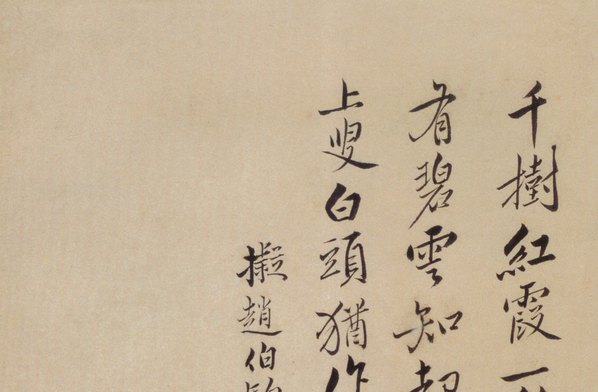 千樹紅霞一
有碧雲知
上叟白頭猶作
擬趙伯